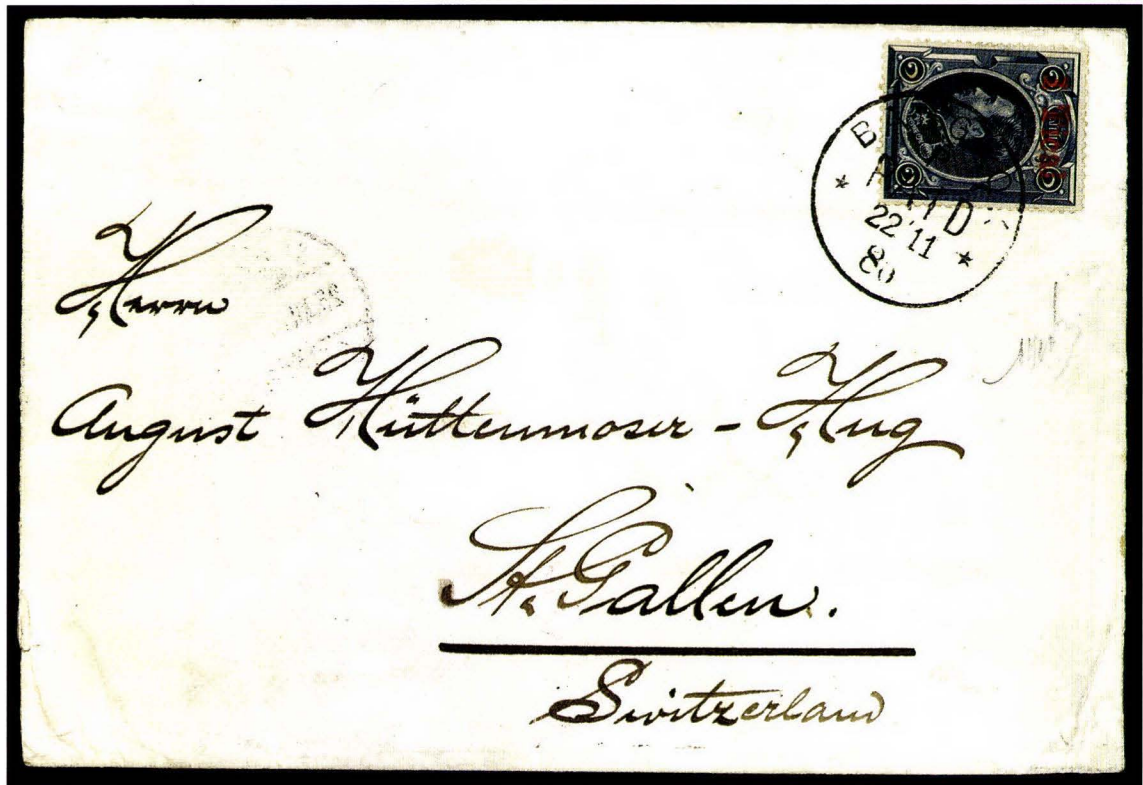 22 11
Herrn
August Hüttenmoser - Hug
St. Gallen.
Switzerland